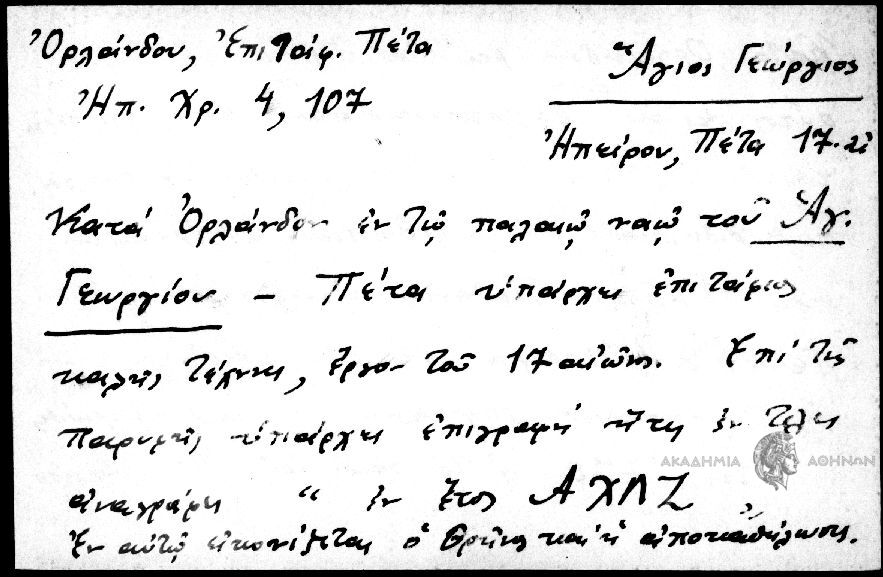 Ὀρλάνδου, Ἐπιταφ. Πέτα
Ἅγιος Γεώργιος
Ἠπ. Χρ. 4, 107
Ἠπείρου, Πέτα 17. αἰ
Κατά Ὀρλάνδον ἐν τῷ παλαιῷ ναῷ τοῦ Ἁγ.
Γεωργίου – Πέτα ὑπάρχει ἐπιτάφιος
καλῆς τέχνης, ἔργον τοῦ 17 αἰῶνος. Ἐπί τῆς
παρυφῆς ὑπάρχει ἐπιγραφή ἥτις ἐν τέλει
ἀναγράφει “ ἐν ἔτος ΑΧΛΖ „
Ἐν αὐτῷ εἰκονίζεται ὁ Θρῆνος καί ἡ ἀποκαθήλωσις.
ΑΚΑΔΗΜΙΑ ΑΘΗΝΩΝ